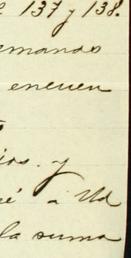 137 y 138.
emanos
encuen
ios. y
é á Ud
la suma